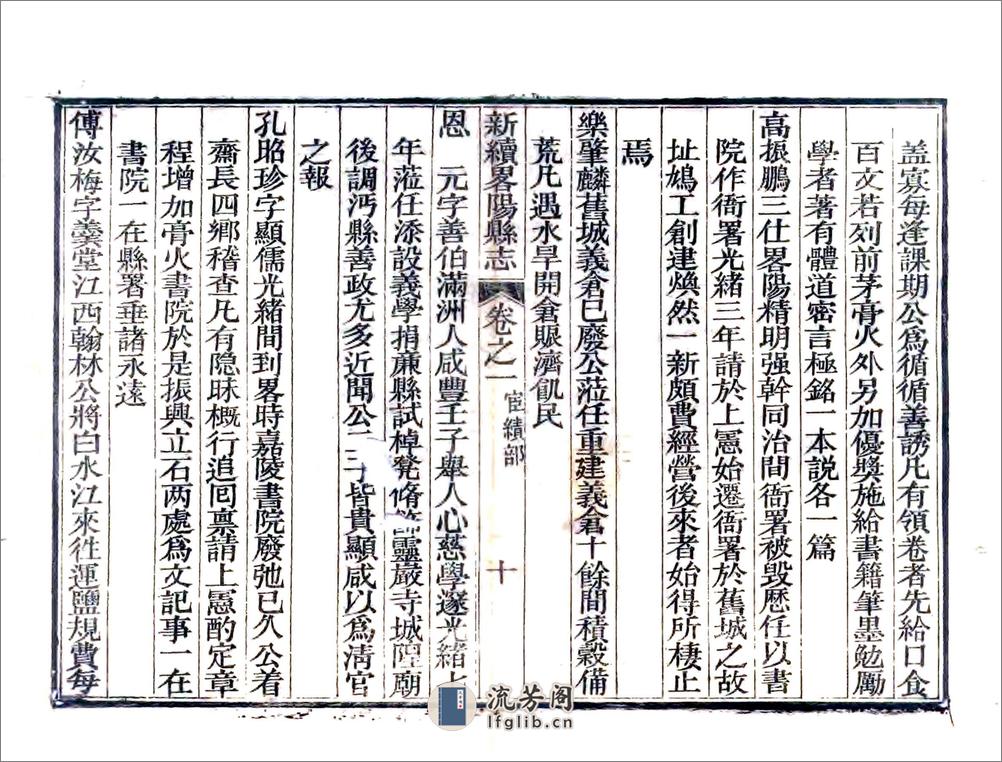 盖寡每逢課期公爲循循善誘凡有領卷者先給口食
百文若列前茅膏火外另加優奬施給書籍筆墨勉勵
學者著有體道密言極銘一本説各一篇
高振鵬三仕畧陽精明强幹同治間衙署被毀歷任以書
院作衙署光緒三年請於上憲始遷衙署於舊城之故
址鳩工創建煥然一新頗費經營後來者始得所棲止
焉
樂肇麟舊城義倉已廢公莅任重建義倉十餘間積穀備
荒凡遇水旱開倉賑濟飢民
新續畧陽縣志 卷之一 宦績部 十
恩 元字善伯滿洲人咸豐壬子舉人心慈學邃光緒七
年莅任添設義學捐廉縣試棹凳脩靈巖寺城隍廟
後調沔縣善政尤多近聞公二三子皆貴顯咸以爲淸官
之報
孔昭珍字顯儒光緒間到畧時嘉陵書院廢弛已久公着
齋長四鄉稽查凡有隐昧概行追囘禀請上憲酌定章
程增加膏火書院於是振興立石两處爲文記事一在
書院一在縣署垂諸永遠
傅汝梅字羮堂江西翰林公將白水江來徃運鹽規費每
流芳阁
lfglib.cn